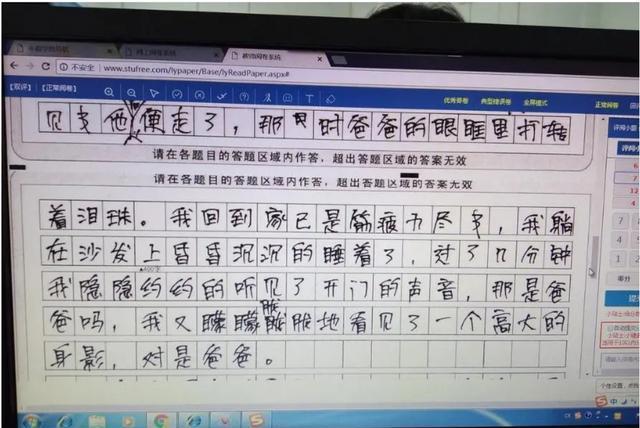 网上阅卷系统
教师阅卷系统
不安全 www.stufree.com/lypaper/Base/lyReadPaper.aspx#
【双评】【正常阅卷】 优秀答卷 典型错误卷 全屏模式 正常阅卷
他便走了，那时爸爸的眼眶里打转
请在各题目的答题区域内作答，超出答题区域的答案无效
请在各题目的答题区域内作答，超出答题区域的答案无效
着泪珠。我回到家已是筋疲力尽了，我躺
在沙发上昏昏沉沉的睡着了，过了几分钟
▲400字
我隐隐约约的听见了开门的声音，那是爸
爸吗，我又朦朦胧胧地看见了一个高大的
身影，对是爸爸。